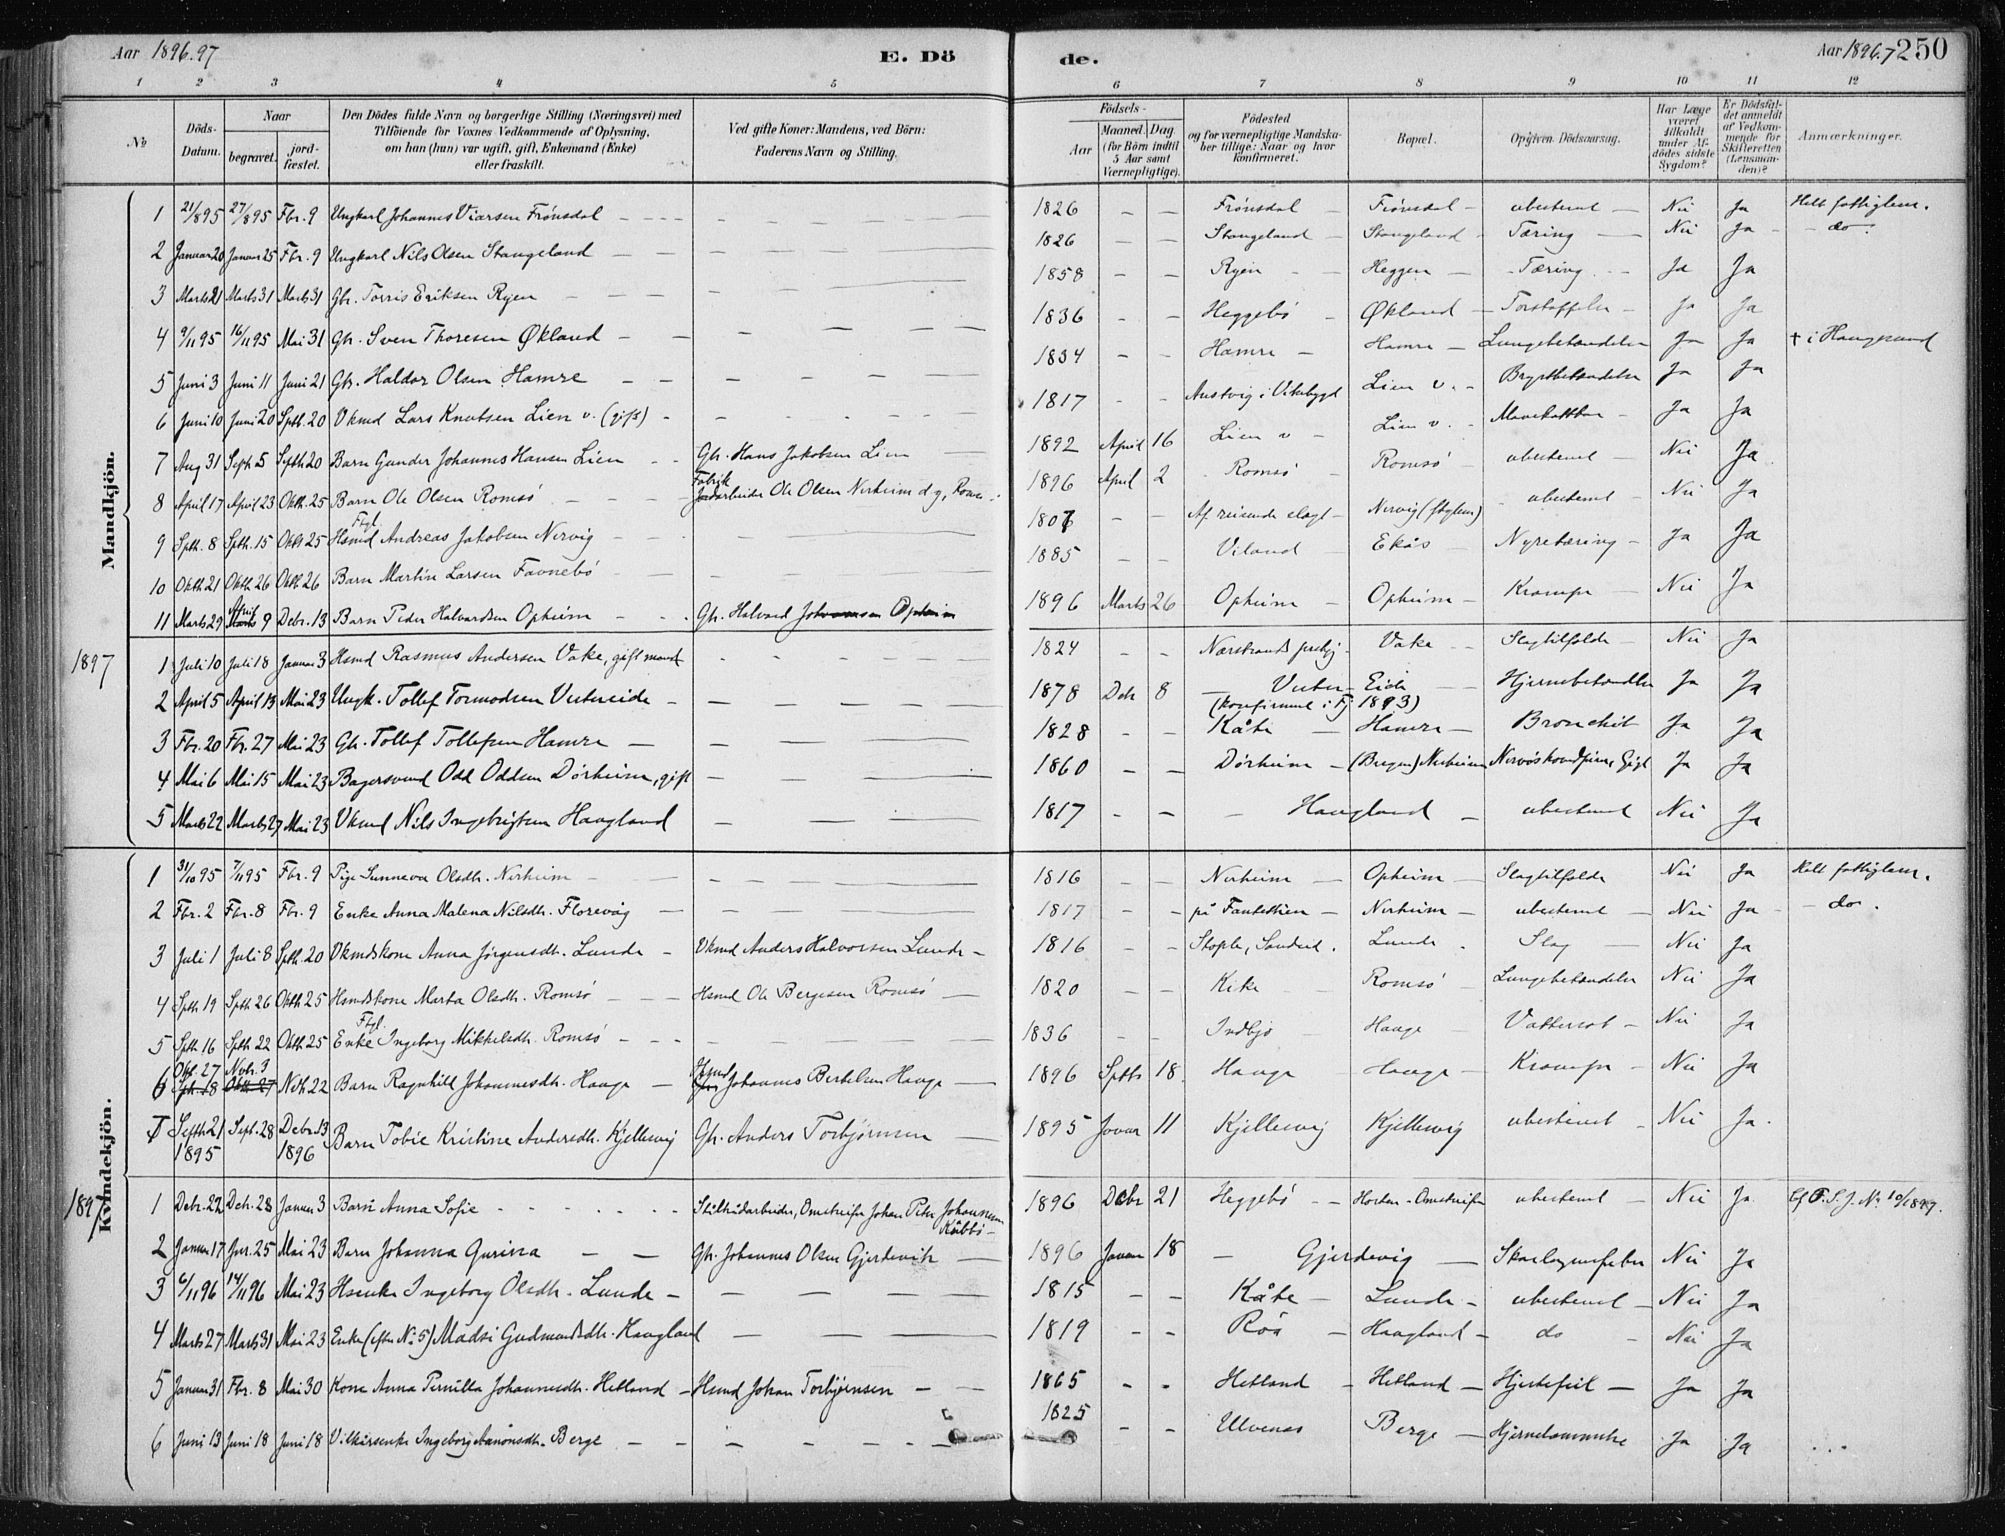 Aar 1896.97 E. Dö de. Aar 1896.7 250
1 2 3 4 5 6 7 8 9 10 11 12
No
Döds-Datum.
Naar
begravet.
jord-fæstet.
Den Dödes fulde Navn og borgerlige Stilling (Næringsvei) med
Tilföiende for Voxnes Vedkommende af Oplysning,
om han (hun) var ugift, gift, Enkemand (Enke)
eller fraskilt.
Ved gifte Koner: Mandens, ved Börn:
Faderens Navn og Stilling.
Födsels-
Aar
Maaned. Dag
(for Börn indtil
5 Aar samt
Værnepligtige).
Födested
og for værnepligtige Mandska-
ber tillige: Naar og hvor
konfirmeret.
Bopæl.
Opgiven Dödsaarsag.
Har Læge
været
tilkaldt
under Af-
dödes sidste
Sygdom?
Er Dödsfal-
det anmeldt
af Vedkom-
mende for
Skifteretten
(Lensman-
den)?
Anmærkninger.
Mandkjön.
1 21/8 95 27/8 95 Fbr. 9 Ungkarl Johannes Viarsen Frönsdal 1826 Frönsdal Frönsdal ubestemt Nei Ja Helt fattiglem.
2 Januar 20 Januar 25 Fbr. 9 Ungkarl Nils Olsen Stangeland 1826 Stangeland Stangeland Tæring Nei Ja do.
3 Marts 21 Marts 31 Marts 31 Gbr. Torris Eriksen Ryen 1858 Ryen Heggen Tæring Ja Ja
4 9/11 95 16/11 95 Mai 31 Gbr. Sven Thoresen Økland 1836 Heggebö Økland Ja Ja † i Haugesund
5 Juni 3 Juni 11 Juni 21 Gbr. Haldor Olsen Hamre 1834 Hamre Hamre Lungebetændelse Ja Ja
6 Juni 10 Juni 20 Sptb. 20 Vkmd Lars Knutsen Lien v. (gift) 1817 Austvig i Vikebygd Lien v. Brystbetændelse Ja Ja
7 Aug 31 Septb. 5 Septb 20 Barn Gunder Johannes Hansen Lien Gbr. Hans Jakobsen Lien 1892 April 16 Lien v Lien v. Ja Ja
8 April 17 April 23 Oktb. 25 Barn Ole Olsen Romsö Fabrikarbeider Ole Olsen Nerheim 1896 April 2 Romsö Romsö ubestemt Nei Ja
9 Sptb. 8 Sptb. 15 Oktb 25 Ftgl. Hsmd Andreas Jakobsen Nervig 1807 Af reisende slægt Nervig (ftglem) ubestemt Nei Ja
10 Oktb 21 Oktb. 26 Oktb 26 Barn Martin Larsen Favnebö 1885 Viland Ekås Nyretæring Ja Ja
11 Marts 29 April 9 Debr. 13 Barn Peder Halvardsen Opheim Gbr. Halvard Johannsen Opheim 1896 Marts 26 Opheim Opheim Krampe Nei Ja
1897
1 Juli 10 Juli 18 Januar 3 Hsmd Rasmus Andersen Vake, gift mand 1824 Nærstrands prstgj. Vake Slagtilfælde Nei Ja
2 April 5 April 13 Mai 23 Ungk. Tollef Tormodsen Vestreide 1878 Debr 8 Eide Hjernebetændelse Ja Ja
3 Fbr. 20 Fbr. 27 Mai 23 Gbr. Tollef Tollefsen Hamre 1828 Kåte Hamre Bronchit Ja Ja
4 Mai 6 Mai 15 Mai 23 Bagersvend Odd Oddsen Dörheim, gift 1860 Dörheim (Bergen) Nerheim Ja Ja
5 Marts 22 Marts 27 Mai 23 Vkmd Nils Ingebrigtsen Haugland 1817 Haugland ubestemt Nei Ja
Kvindekjön.
1 31/10 95 7/11 95 Fbr. 9 Pige Sunneva Olsdtr. Nerheim 1816 Nerheim Opheim Slagtilfælde Nei Ja Helt fattiglem.
2 Fbr. 2 Fbr. 8 Fbr. 9 Enke Anna Malena Nilsdtr. Florevåg 1817 på Fantestien Nerheim ubestemt Nei Ja do.
3 Juli 1 Juli 8 Sptb. 20 Vkmdskone Anna Jörgensdtr. Lunde Vkmd Anders Halvorsen Lunde 1816 Stople, Sandeid. Lunde Slag Nei Ja
4 Sptb 19 Sptb 26 Oktb 25 Hsmdskone Marta Olsdtr. Romsö Hsmd Ole Bergesen Romsö 1820 Kike Romsö Lungebetændelse Nei Ja
5 Sptb 16 Sptb 22 Oktb 25 Ftgl. Enke Ingeborg Mikkelsdtr. Romsö 1836 Indbjo Hauge Vattersot Nei Ja
6 Oktb. 27 Nvbr. 3 Nvb 22 Barn Ragnhild Johannesdtr. Hauge Hsmd Johannes Bertelsen Hauge 1896 Sptb 18 Hauge Hauge Krampe Nei Ja
7 Septb 21 1895 Sept. 28 Debr. 13 1896 Barn Tobie Kristine Andersdtr. Kjellesvig Gbr. Anders Torbjörnsen 1895 Januar 11 Kjellesvig Kjellesvig ubestemt Nei Ja.
1897
1 Debr. 22 Debr. 28 Januar 3 Barn Anna Sofie Omstreifer Johan Peter Johannsen 1896 Debr 21 Heggebö Horten - Omstreifer ubestemt Nei Ja Cf F.S.J. No 10/1897.
2 Januar 17 Jnr. 25 Mai 23 Barn Johanna Gurina Gbr. Johannes Olsen Gjerdevik 1896 Januar 18 Gjerdevig Skarlagensfeber Nei Ja
3 6/11 96 14/11 96 Mai 23 Hsenke Ingeborg Olsdtr. Lunde 1815 Kåte Lunde ubestemt Nei Ja
4 Marts 27 Marts 31 Mai 23 Enke (efter No 5) Madsi Gudmundsdtr. Haugland 1819 Röa Haugland do Nei Ja
5 Januar 31 Fbr. 8 Mai 30 Kone Anna Pernilla Johannesdtr. Hetland Hsmd Johan Torbjörnsen 1865 Hetland Hetland Hjertefeil Ja Ja
6 Juni 13 Juni 18 Juni 18 Vilkårsenke Ingeborg Aanonsdtr. Berge 1825 Ulvenes Berge Ja Ja